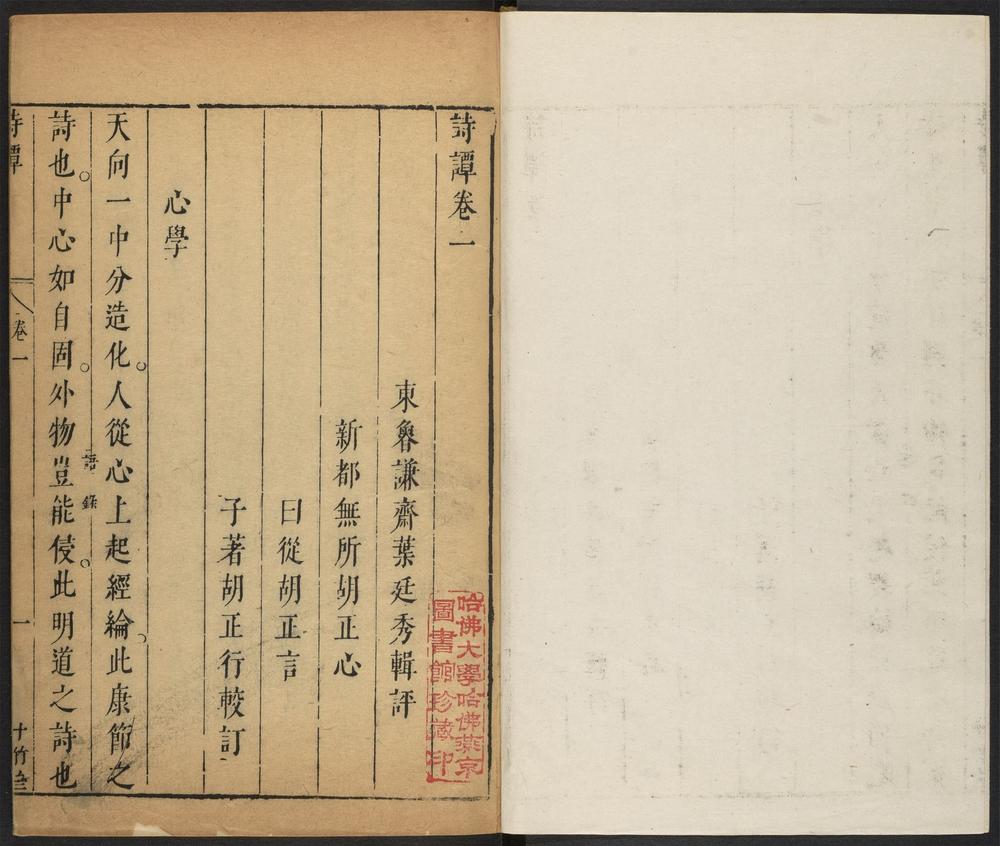 詩譚卷一
東魯謙齋葉廷秀輯評
新都無所胡正心
曰從胡正言
子著胡正行較訂
心學
天向一中分造化人從心上起經綸此康節之
詩也中心如自固外物豈能侵此明道之詩也
語錄
詩譚
卷一
一
十竹
哈佛大學哈佛燕京
圖書館珍藏印